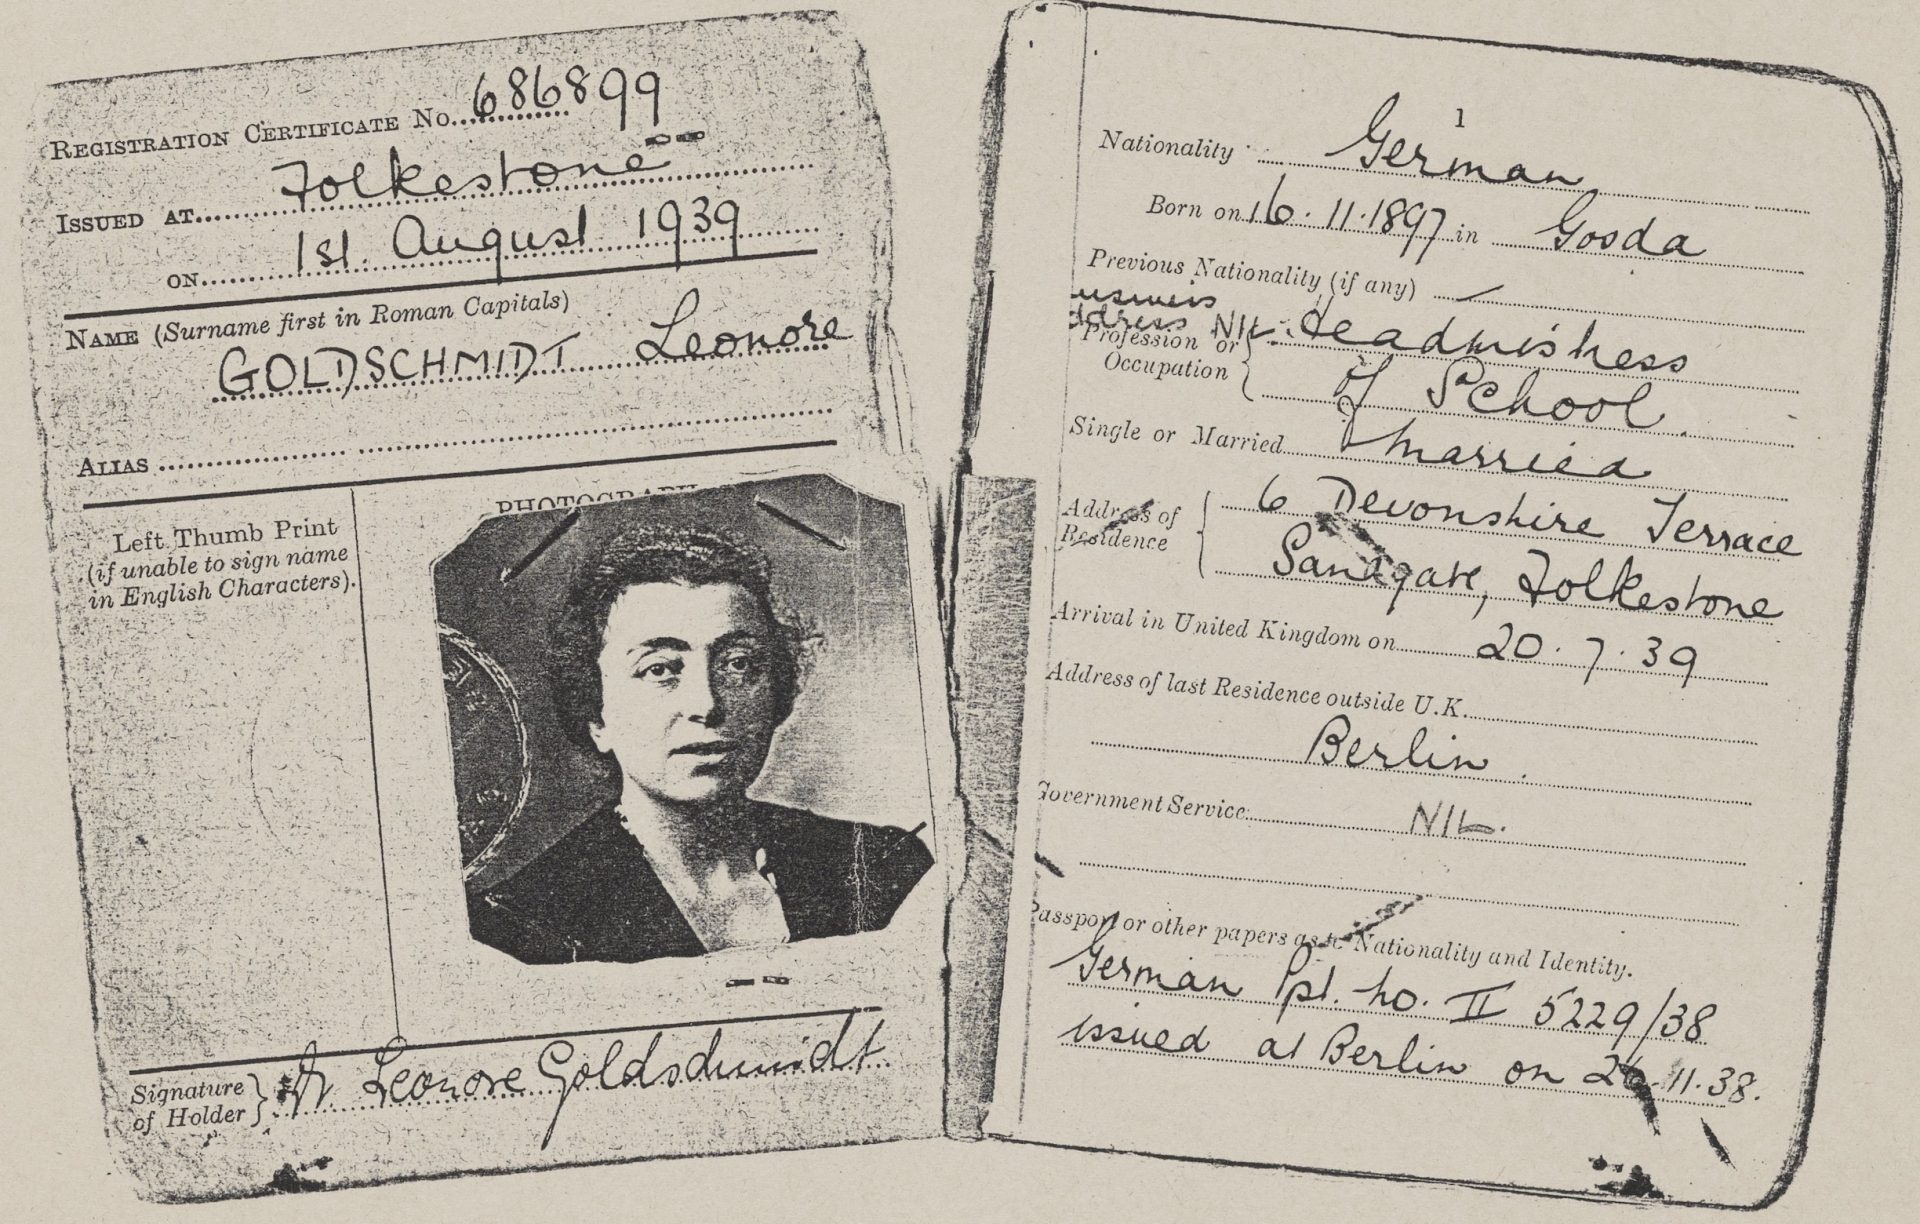 REGISTRATION CERTIFICATE No. 686899
ISSUED AT Folkestone
ON 1st. August 1939
NAME (Surname first in Roman Capitals)
GOLDSCHMIDT Leonore
ALIAS
PHOTOGRAPH
Left Thumb Print
(if unable to sign name
in English Characters).
Signature
of Holder} Dr Leonore Goldschmidt
1
Nationality German
Born on 16.11.1897 in Gosda
Previous Nationality (if any) —
usiness
ddress NIL.
Profession or
Occupation { Headmistress
of School.
Single or Married Married
Address of
Residence { 6 Devonshire Terrace
Sandgate, Folkestone
Arrival in United Kingdom on 20.7.39
Address of last Residence outside U.K.
Berlin.
Government Service NIL.
Passport or other papers as to Nationality and Identity.
German Ppt. no. II 5229/38
issued at Berlin on 11.38.